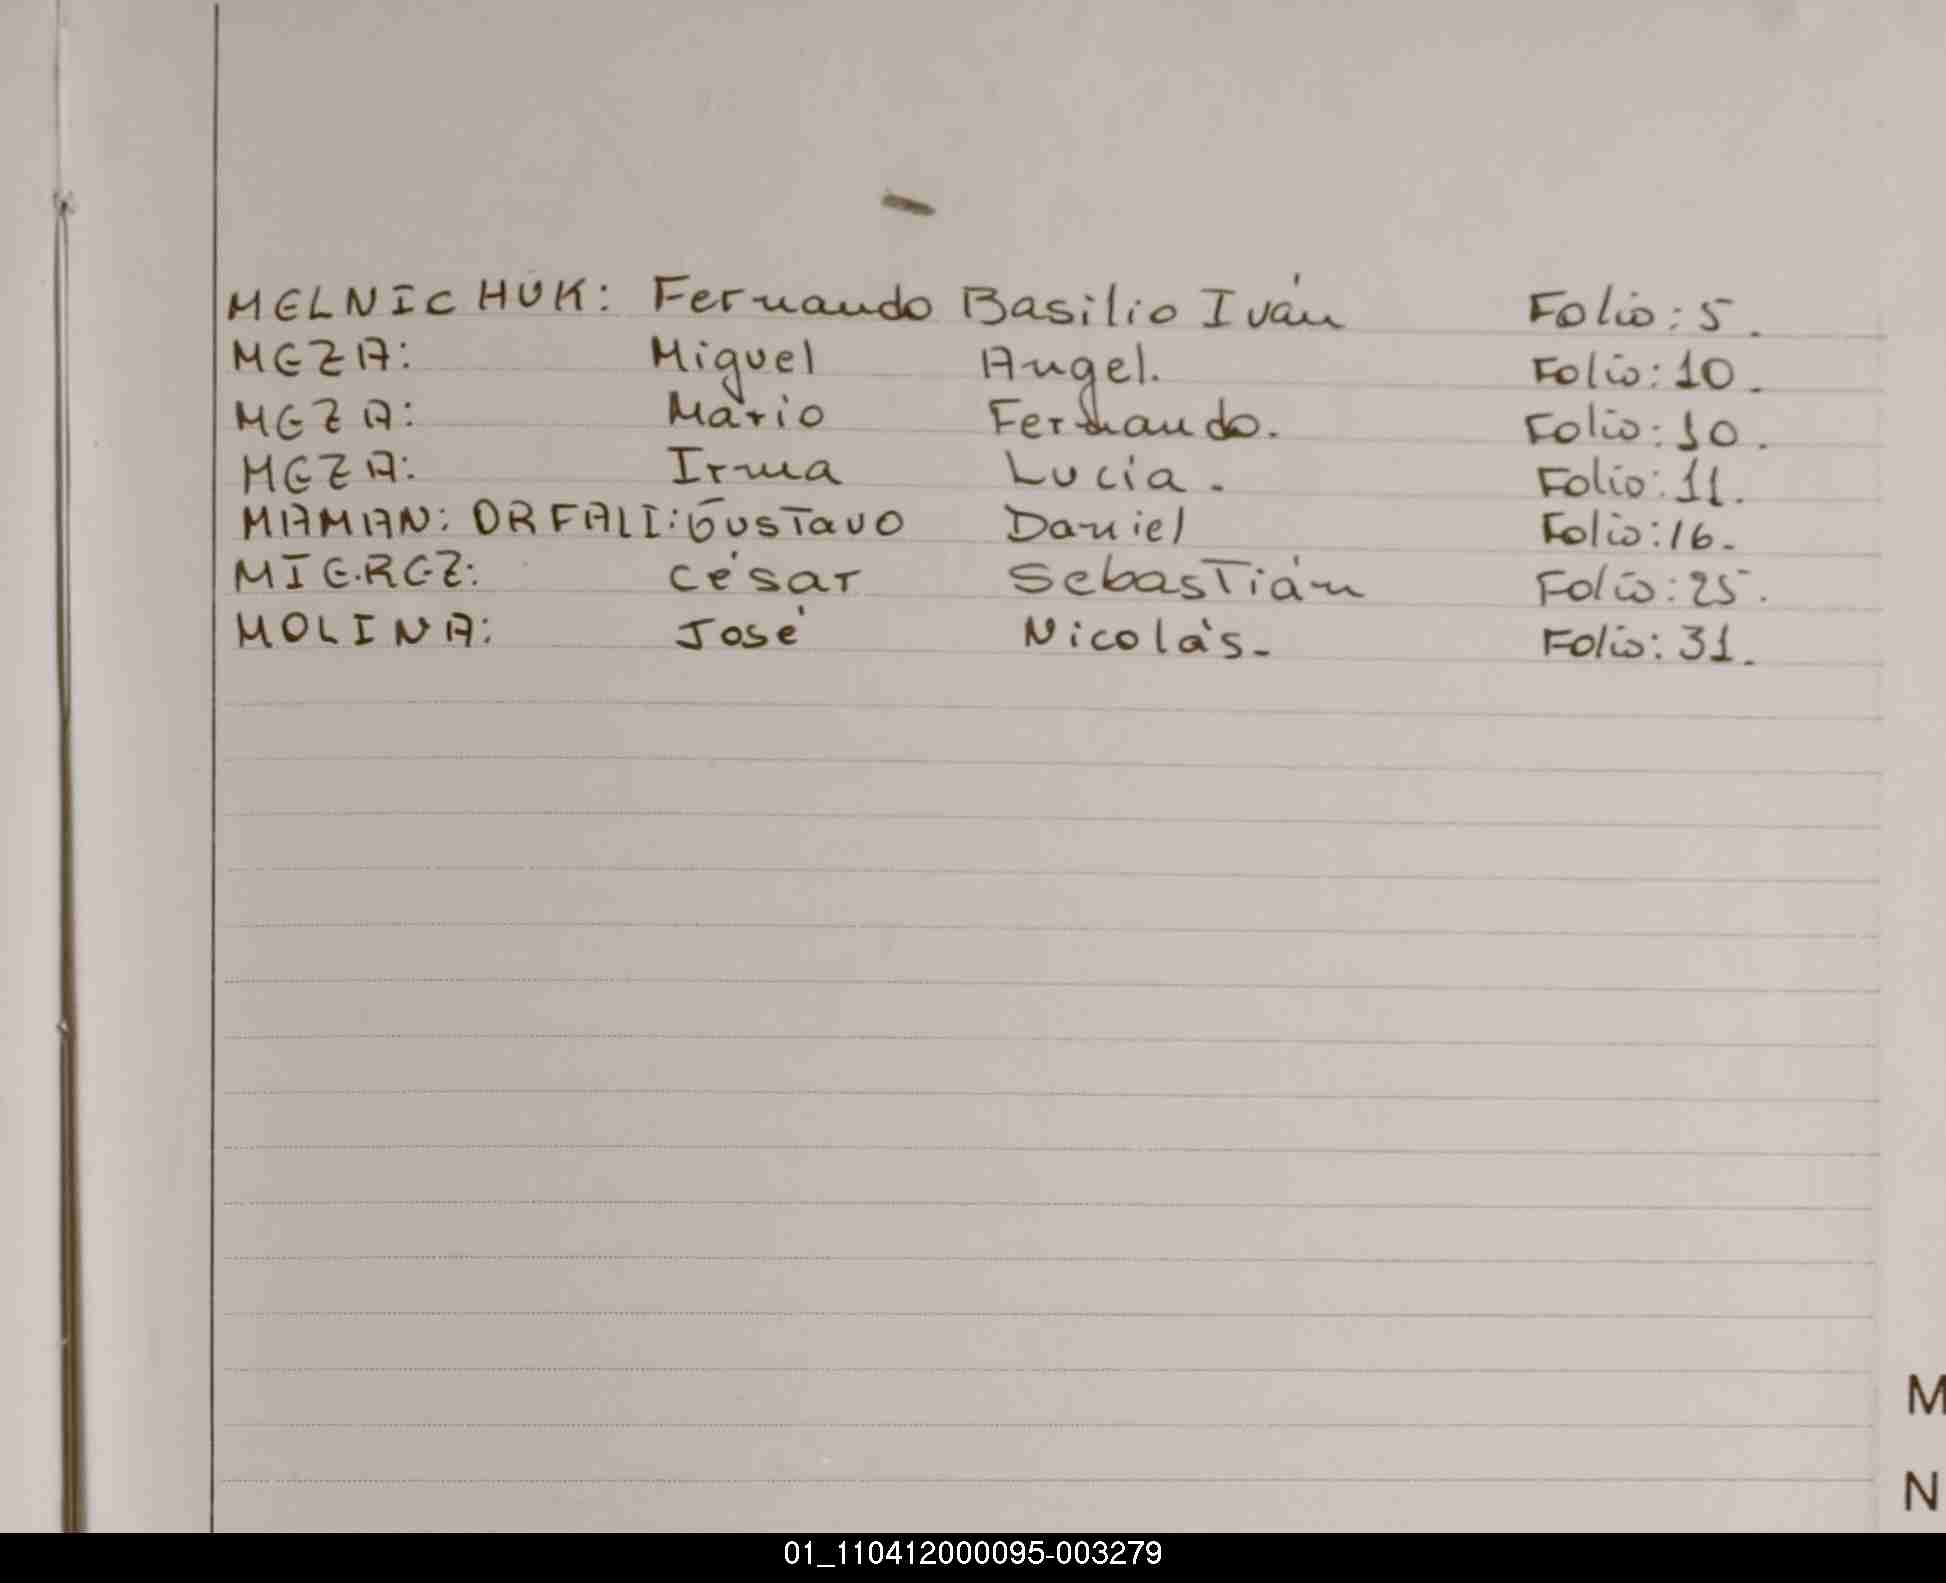 MELNICHUK: Fernando Basilio Iván Folio: 5.
MEZA: Miguel Angel. Folio: 10.
MEZA: Mario Fernando. Folio: 10.
MEZA: Irma Lucia. Folio: 11.
MAMAN: ORFALI: Gustavo Daniel Folio: 16.
MIEREZ: César Sebastián Folio: 25.
MOLINA: José Nicolás. Folio: 31.
M
N
01_110412000095-003279